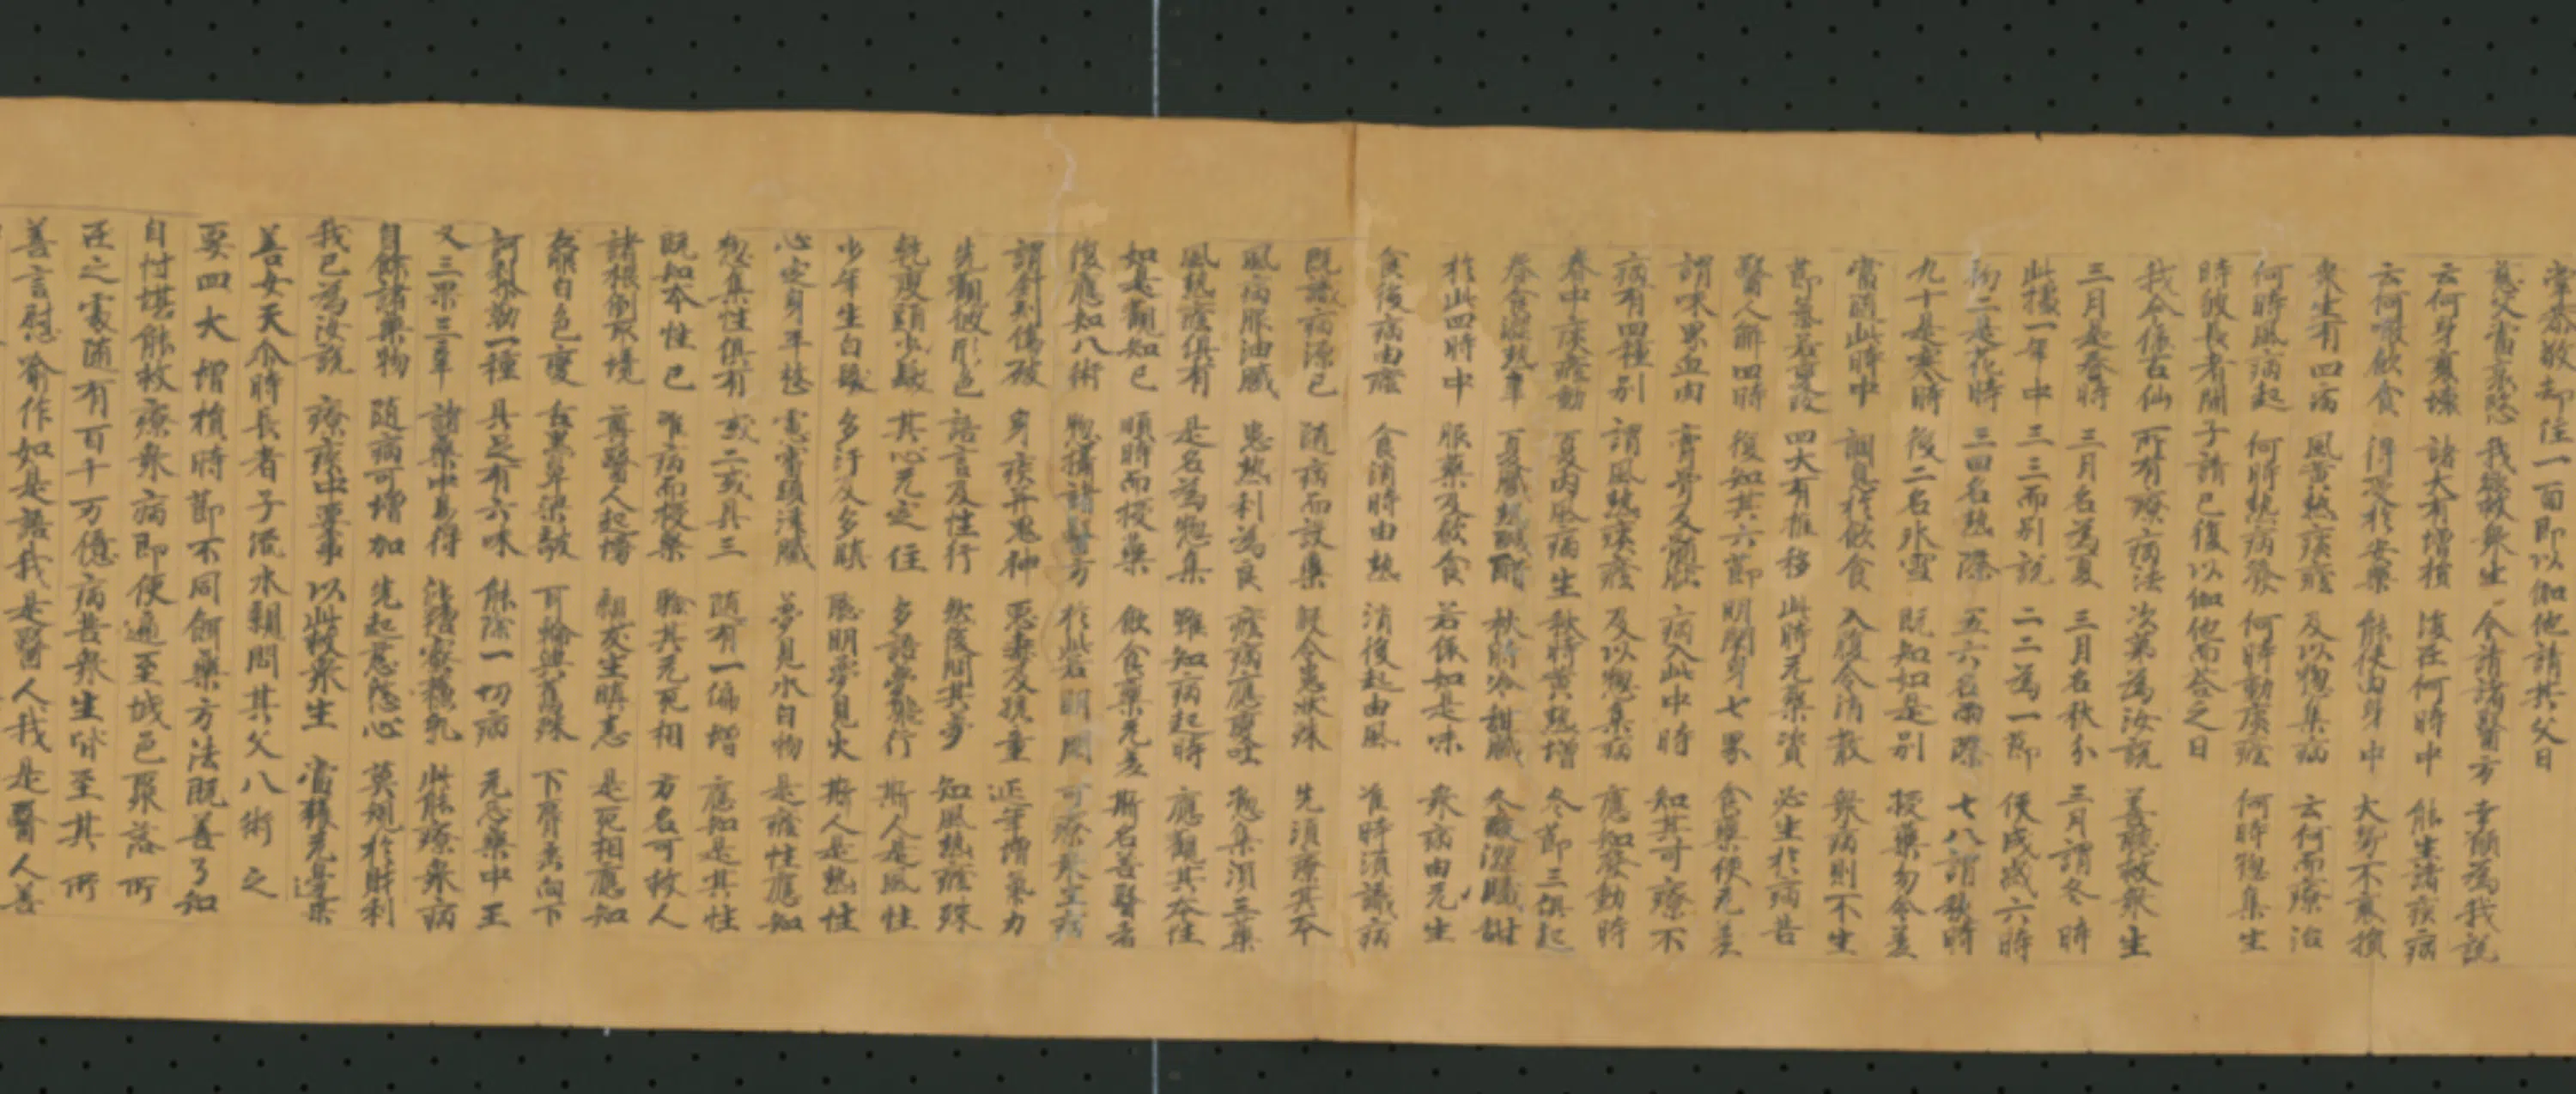 掌恭敬却住一面即以伽他請其父曰
慈父當哀愍 我欲救衆生 今請諸醫方 幸願為我說
云何身衰壞 諸大有增損 復在何時中 能生諸疾病
云何噉飲食 得受於安樂 能使內身中 火勢不衰損
衆生有四病 風黃熱痰癊 及以惣集病 云何而療治
何時風病起 何時熱病發 何時動痰癊 何時惣集生
時彼長者聞子請已復以伽他而答之曰
我今依古仙 所有療病法 次第為汝說 善聽救衆生
三月是春時 三月名為夏 三月名秋分 三月謂冬時
此據一年中 三三而別說 二二為一節 便成歲六時
初二是花時 三四名熱際 五六名雨際 七八謂秋時
九十是寒時 後二名氷雪 既知如是別 授藥勿令差
當隨此時中 調息於飲食 入腹令消散 衆病則不生
節氣若變改 四大有推移 此時无藥資 必生於病苦
醫人解四時 復知其六節 明閑身七界 食藥使无差
謂味界血肉 膏骨及髓腦 病入此中時 知其可療不
病有四種別 謂風熱痰癊 及以惣集病 應知發動時
春中痰癊動 夏內風病生 秋時黃熱增 冬節三俱起
春食澀熱辛 夏膩熱醎醋 秋時冷甜膩 冬酸澀膩甜
於此四時中 服藥及飲食 若依如是味 衆病由无生
食後病由癊 食消時由熱 消後起由風 准時須識病
既識病源已 隨病而設藥 假令患狀殊 先須療其本
風病服油膩 患熱利為良 癊病應變吐 惣集須三藥
風熱癊俱有 是名為惣集 雖知病起時 應觀其本性
如是觀知已 順時而授藥 飲食藥无差 斯名善醫者
復應知八術 惣攝諸醫方 於此若明閑 可療衆生病
謂針刾傷破 身疾并鬼神 惡毒及孩童 延年增氣力
先觀彼形色 語言及性行 然後問其夢 知風熱癊殊
乾瘦頭少髮 其心无定住 多語夢飛行 斯人是風性
少年生白髮 多汗及多瞋 聰明夢見火 斯人是熱性
心定身平整 慮審頭津膩 夢見水白物 是癊性應知
惣集性俱有 或二或具三 隨有一偏增 應知是其性
既知本性已 准病而授藥 驗其无死相 方名可救人
諸根倒取境 尊醫人起慢 親友生瞋恚 是死相應知
左眼白色變 舌黑鼻梁攲 耳輪與舊殊 下脣垂向下
訶梨勒一種 具足有六味 能除一切病 无忌藥中王
又三果三辛 諸藥中易得 沙糖蜜蘇乳 此能療衆病
自餘諸藥物 隨病可增加 先起慈愍心 莫規於財利
我已為汝說 療疾中要事 以此救衆生 當獲无邊果
善女天尒時長者子流水親問其父八術之
要四大增損時節不同餌藥方法既善了知
自忖堪能救療衆病即便遍至城邑聚落所
在之處隨有百千万億病苦衆生皆至其所
善言慰喻作如是語我是醫人我是醫人善